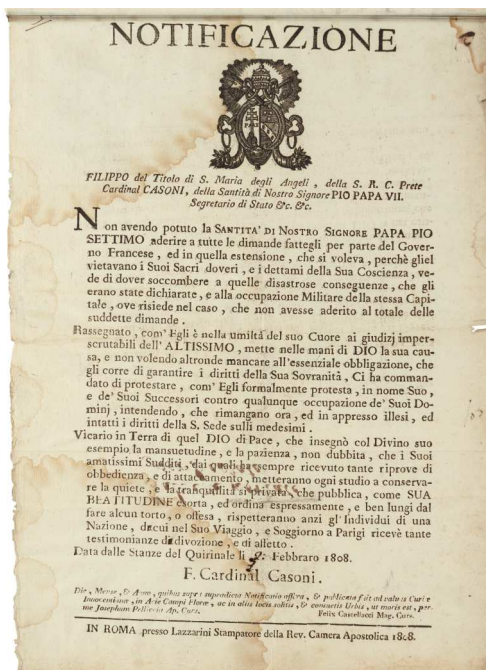 NOTIFICAZIONE
FILIPPO del Titolo di S. Maria degli Angeli, della S. R. C. Prete
Cardinal CASONI, della Santità di Nostro Signore PIO PAPA VII.
Segretario di Stato &c. &c.
Non avendo potuto la SANTITA' DI NOSTRO SIGNORE PAPA PIO
SETTIMO aderire a tutte le dimande fattegli per parte del Gover-
no Francese, ed in quella estensione, che si voleva, perchè gliel
vietavano i Suoi sacri doveri, e i dettami della Sua Coscienza, ve-
de di dover soccombere a quelle disastrose conseguenze, che gli
erano state dichiarate, e alla occupazione Militare della stessa Capi-
tale, ove risiede nel caso, che non avesse aderito al totale delle
suddette dimande.
Rassegnato, com' Egli è nella umiltà del suo Cuore ai giudizj imper-
scrutabili dell' ALTISSIMO, mette nelle mani di DIO la sua cau-
sa, e non volendo altronde mancare all'essenziale obbligazione, che
gli corre di garantire i diritti della Sua Sovranità, Ci ha comman-
dato di protestare, com' Egli formalmente protesta, in nome Suo,
e de' Suoi Successori contro qualunque occupazione de' Suoi Do-
minj, intendendo, che rimangano ora, ed in appresso illesi, ed
intatti i diritti della S. Sede sulli medesimi.
Vicario in Terra di quel DIO di Pace, che insegnò col Divino suo
esempio la mansuetudine, e la pazienza, non dubbita, che i Suoi
amatissimi Sudditi, dai quali ha sempre ricevuto tante riprove di
obbedienza, e di attaccamento, metteranno ogni studio a conserva-
re la quiete, e la tranquillità sì privata, che pubblica, come SUA
BEATITUDINE esorta, ed ordina espressamente, e ben lungi dal
fare alcun torto, o offesa, rispetteranno anzi gl' Individui di una
Nazione, da cui nel Suo Viaggio, e Soggiorno a Parigi ricevè tante
testimonianze di divozione, e di affetto.
Data dalle Stanze del Quirinale li 2. Febbraro 1808.
F. Cardinal Casoni.
Die, Mense, & Anno, quibus supra supradicta Notificatio affixa, & publicata fuit ad valvas Curiæ
Innocentianæ, in Acie Campi Floræ, ac in aliis locis solitis, & consuetis Urbis, ut moris est, per
me Josephum Pelliccia Ap. Curs.
Felix Castellacci Mag. Curs.
IN ROMA presso Lazzarini Stampatore della Rev. Camera Apostolica 1808.